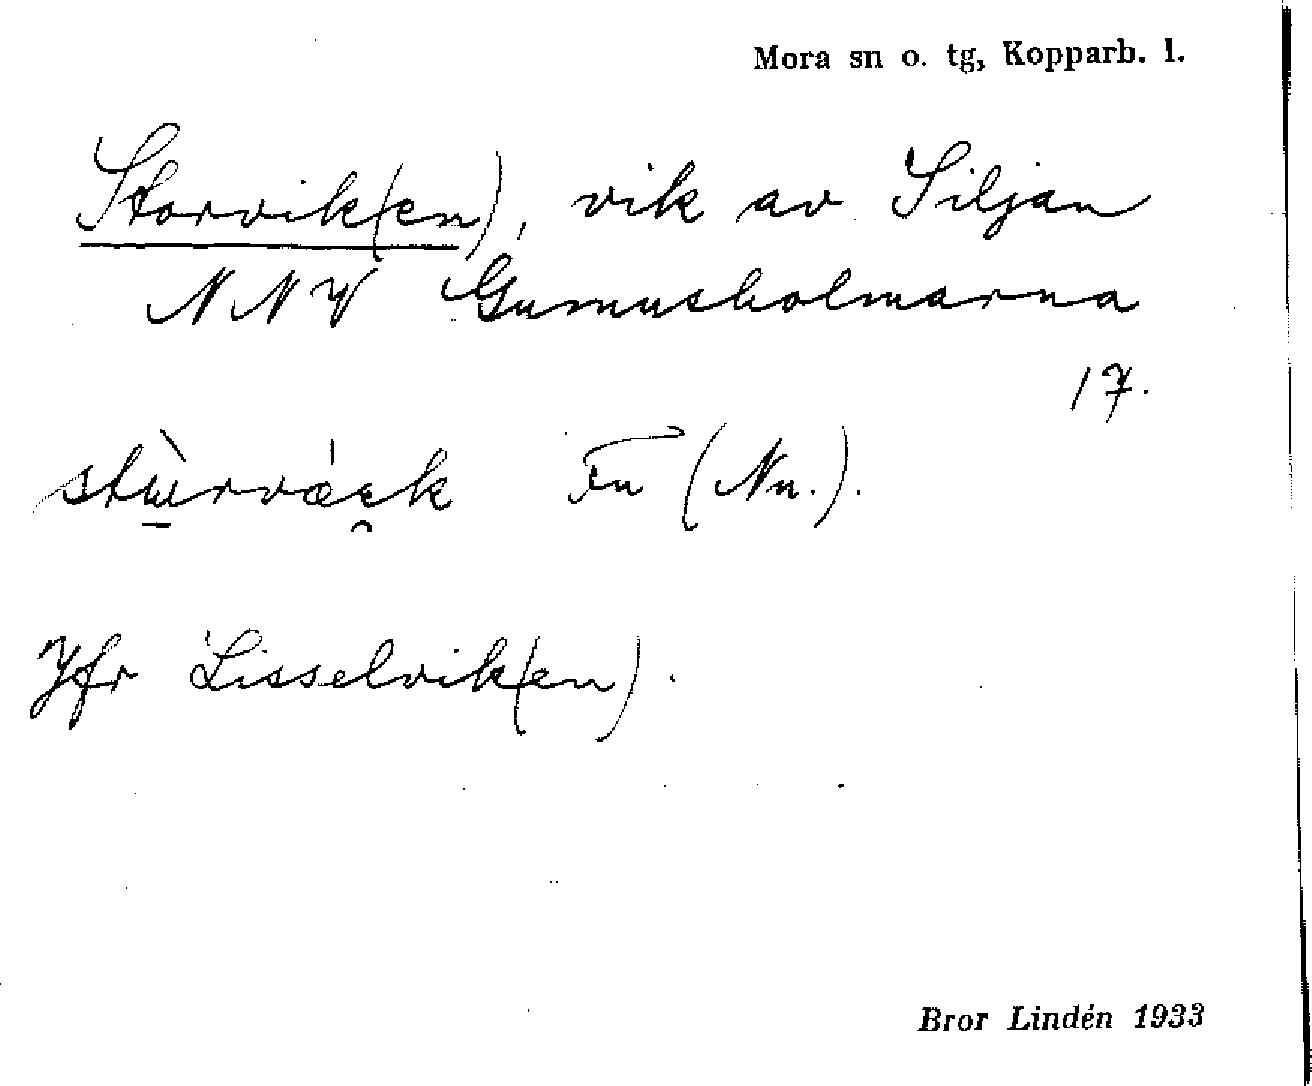 Mora sn o. tg, Kopparb. l.
Storvik(en), vik av Siljan
NNV Gumusholmarna
17.
stùrvæ̀ek Fu (Nu.).
Jfr Lisselvik(en).
Bror Lindén 1933